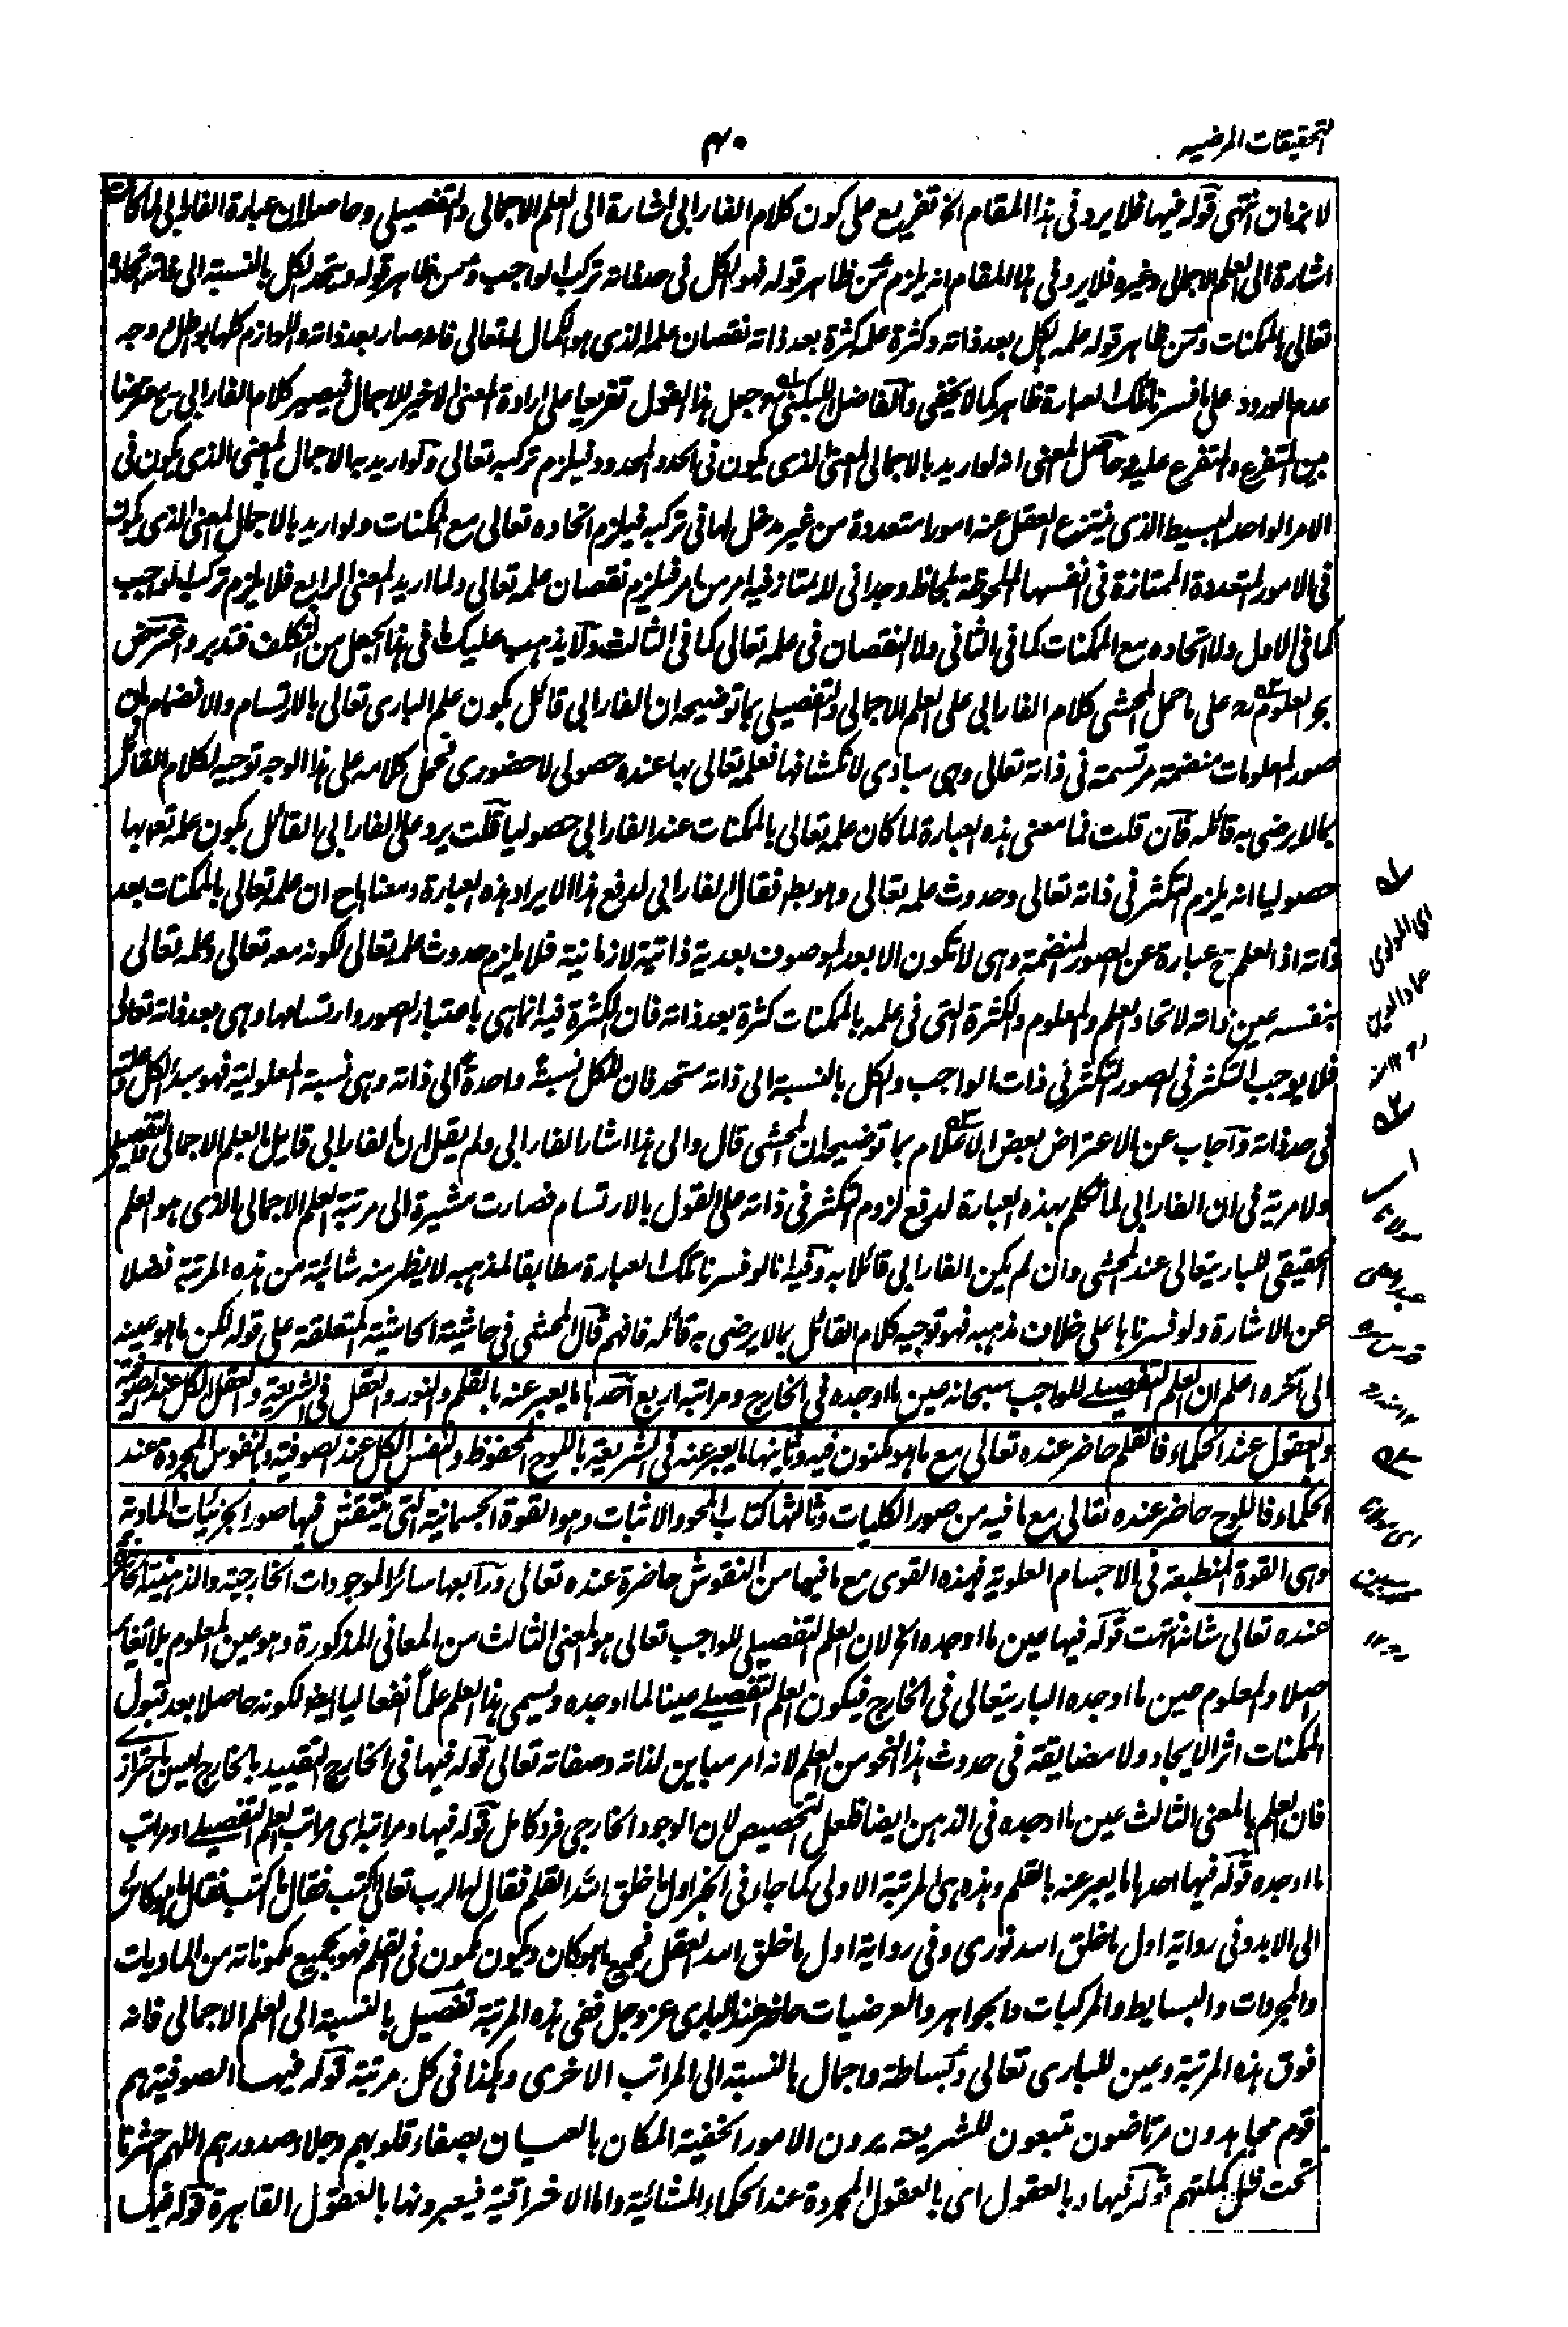 التحقيقات المرضيه
۴۰
لا بزمان انتهى قوله فيها فلا يرد فى هذا المقام الخ تفريع على كون كلام الفارابى اشارة الى العلم الاجمالى والتفصيلى وحاصله ان عبارة الفارابى لما كانت
اشارة الى العلم الاجمالى وغيره فلا يرد فى هذا المقام انه يلزم من ظاهر قوله فهو الكل فى حد ذاته تركب الواجب ومن ظاهر قوله ويتحد الكل بالنسبة الى ذاته اتحاده
تعالى بالممكنات ومن ظاهر قوله علمه بالكل بعد ذاته وكثرة علمه كثرة بعد ذاته نقصان علمه الذى هو الكمال له تعالى فانه صار بعد ذاته واللوازم كلها باطلة وجه
عدم الورود على ما فسرنا تلك العبارة ظاهر كما لا يخفى والفاضل اللبكنى رح جعل هذا القول تفريعا على ارادة المعنى الاخير للاجمال فيصير كلام الفارابى ح معترضا
بين المتفرع والمتفرع عليه وحاصل المعنى انه لو اريد بالاجمالى المعنى الذى يكون فى الحد والمحدود فيلزم تركبه تعالى ولو اريد به الاجمال بالمعنى الذى يكون فى
الامر الواحد البسيط الذى ينتزع العقل عنه امورا متعددة من غير مدخل لها فى تركبه فيلزم اتحاده تعالى مع الممكنات ولو اريد بالاجمال المعنى الذى يكون
فى الامور المتعددة الممتازة فى انفسها الملحوظة بلحاظ وحدانى لا يمتاز فيه امر من امر فيلزم نقصان علمه تعالى ولما اريد المعنى الرابع فلا يلزم تركب الواجب
كما فى الاول ولا اتحاده مع الممكنات كما فى الثانى ولا النقصان فى علمه تعالى كما فى الثالث ولا يذهب عليك ما فى هذا الجعل من التكلف فتدبر واعترض
بحر العلوم رح على ما حمل المحشى كلام الفارابى على العلم الاجمالى والتفصيلى بما توضيحه ان الفارابى قائل بكون علم البارى تعالى بالارتسام والانضمام بان
صور المعلومات منضمة مرتسمة فى ذاته تعالى وهى مبادى لانكشافها فعلمه تعالى بها عنده حصولى لا حضورى فحمل كلامه على هذا الوجه توجيه لكلام القائل
بما لا يرضى به قائله فان قلت فما معنى هذه العبارة لما كان علمه تعالى بالممكنات عند الفارابى حصوليا قلت يرد على الفارابى القائل بكون علمه تع بها
حصوليا انه يلزم التكثر فى ذاته تعالى وحدوث علمه تعالى وهو بط فقال الفارابى لدفع هذا الايراد هذه العبارة ومعناها ح ان علمه تعالى بالممكنات بعد
ذاته اذ العلم ح عبارة عن الصور المنضمة وهى لا تكون الا بعد الموصوف بعدية ذاتية لا زمانية فلا يلزم حدوث علمه تعالى لكونه معه تعالى وعلمه تعالى
بنفسه عين ذاته لاتحاد العلم والمعلوم والكثرة التى فى علمه بالممكنات كثرة بعد ذاته فان الكثرة فيه انما هى باعتبار الصور وارتسامها وهى بعد ذاته تعالى
فلا يوجب التكثر فى الصور التكثر فى ذات الواجب والكل بالنسبة الى ذاته متحد فان للكل نسبة واحدة الى ذاته وهى نسبة المعلولية فهو مبدء الكل وعلته
فى حد ذاته واجاب عن الاعتراض بعض الاعلام بما توضيحه ان المحشى قال والى هذا اشار الفارابى ولم يقل ان الفارابى قايل بالعلم الاجمالى والتفصيلى
ولا مرية فى ان الفارابى لما تكلم بهذه العبارة لدفع لزوم التكثر فى ذاته على القول بالارتسام فصارت مشيرة الى مرتبة العلم الاجمالى الذى هو العلم
الحقيقى للبارى تعالى عند المحشى وان لم يكن الفارابى قائلا به وفيه انا لو فسرنا تلك العبارة مطابقا لمذهبه لا يظهر منه شائبة من هذه المرتبة فضلا
عن الاشارة ولو فسرناها على خلاف مذهبه فهو توجيه كلام القائل بما لا يرضى به قائله فافهم قال المحشى فى حاشية الحاشية المتعلقة على قوله لكن ما هو عينه
الى آخره اعلم ان العلم التفصيلے للواجب سبحانه عين ما اوجده فى الخارج ومراتبه اربع احدها ما يعبر عنه بالقلم والنور والعقل فى الشريعة والعقل الكل عند الصوفية
والعقول عند الحكماء فالقلم حاضر عنده تعالى مع ما هو مكنون فيه وثانيها ما يعبر عنه فى الشريعة باللوح المحفوظ والنفس الكل عند الصوفية والنفوس المجردة عند
الحكماء فاللوح حاضر عنده تعالى مع ما فيه من صور الكليات وثالثها كتاب المحو والاثبات وهو القوة الجسمانية التى ينتقش فيها صور الجزئيات المادية
وهى القوة المنطبعة فى الاجسام العلوية فهذه القوى مع ما فيها من النقوش حاضرة عنده تعالى ورابعها سائر الموجودات الخارجية والذهنية الحاضرة
عنده تعالى شانه انتهت قوله فيها عين ما اوجده الخ لان العلم التفصيلى للواجب تعالى هو المعنى الثالث من المعانى المذكورة وهو عين المعلوم بلا تغاير
اصلا والمعلوم عين ما اوجده البارى تعالى فى الخارج فيكون العلم التفصيلے عينا لما اوجده ويسمى هذا العلم علماً انفعاليا ايضا لكونه حاصلا بعد قبول
الممكنات اثر الايجاد ولا مضايقة فى حدوث هذا النحو من العلم لانه امر مباين لذاته وصفاته تعالى قوله فيها فى الخارج التقييد بالخارج ليس باحترازے
فان العلم بالمعنى الثالث عين ما اوجده فى الذهن ايضا فلعل التخصيص لان الوجود الخارجى فرد كامل قوله فيها ومراتبه اى مراتب العلم التفصيلے او مراتب
ما اوجده قوله فيها احدها ما يعبر عنه بالقلم وهذه هى المرتبة الاولى كما جاء فى الخبر اول ما خلق الله القلم فقال لها الرب تعالى اكتب فقال ما اكتب فقال ما هو كائن
الى الابد وفى رواية اول ما خلق الله نورى وفى رواية اول ما خلق الله العقل فجميع ما هو كان ويكون مكنون فى القلم فهو بجميع مكنوناته من الماديات
والمجردات والبسايط والمركبات والجواهر والعرضيات حاضر عند البارى عز وجل ففى هذه المرتبة تفصيل بالنسبة الى العلم الاجمالى فانه
فوق هذه المرتبة وعين للبارى تعالى وبساطة واجمال بالنسبة الى المراتب الاخرى وهكذا فى كل مرتبة قوله فيها الصوفية هم
قوم مجاهدون مرتاضون متبعون للشريعة يرون الامور الخفية المكان بالعيان بصفاء قلوبهم وجلاء صدورهم اللهم احشرنا
تحت ظل كملتهم قوله فيها وبالعقول اى بالعقول المجردة عند الحكماء المشائية واما الاشراقية فيعبرونها بالعقول القاهرة قوله فيها
اى المولوى
عماد الدين
مولانا